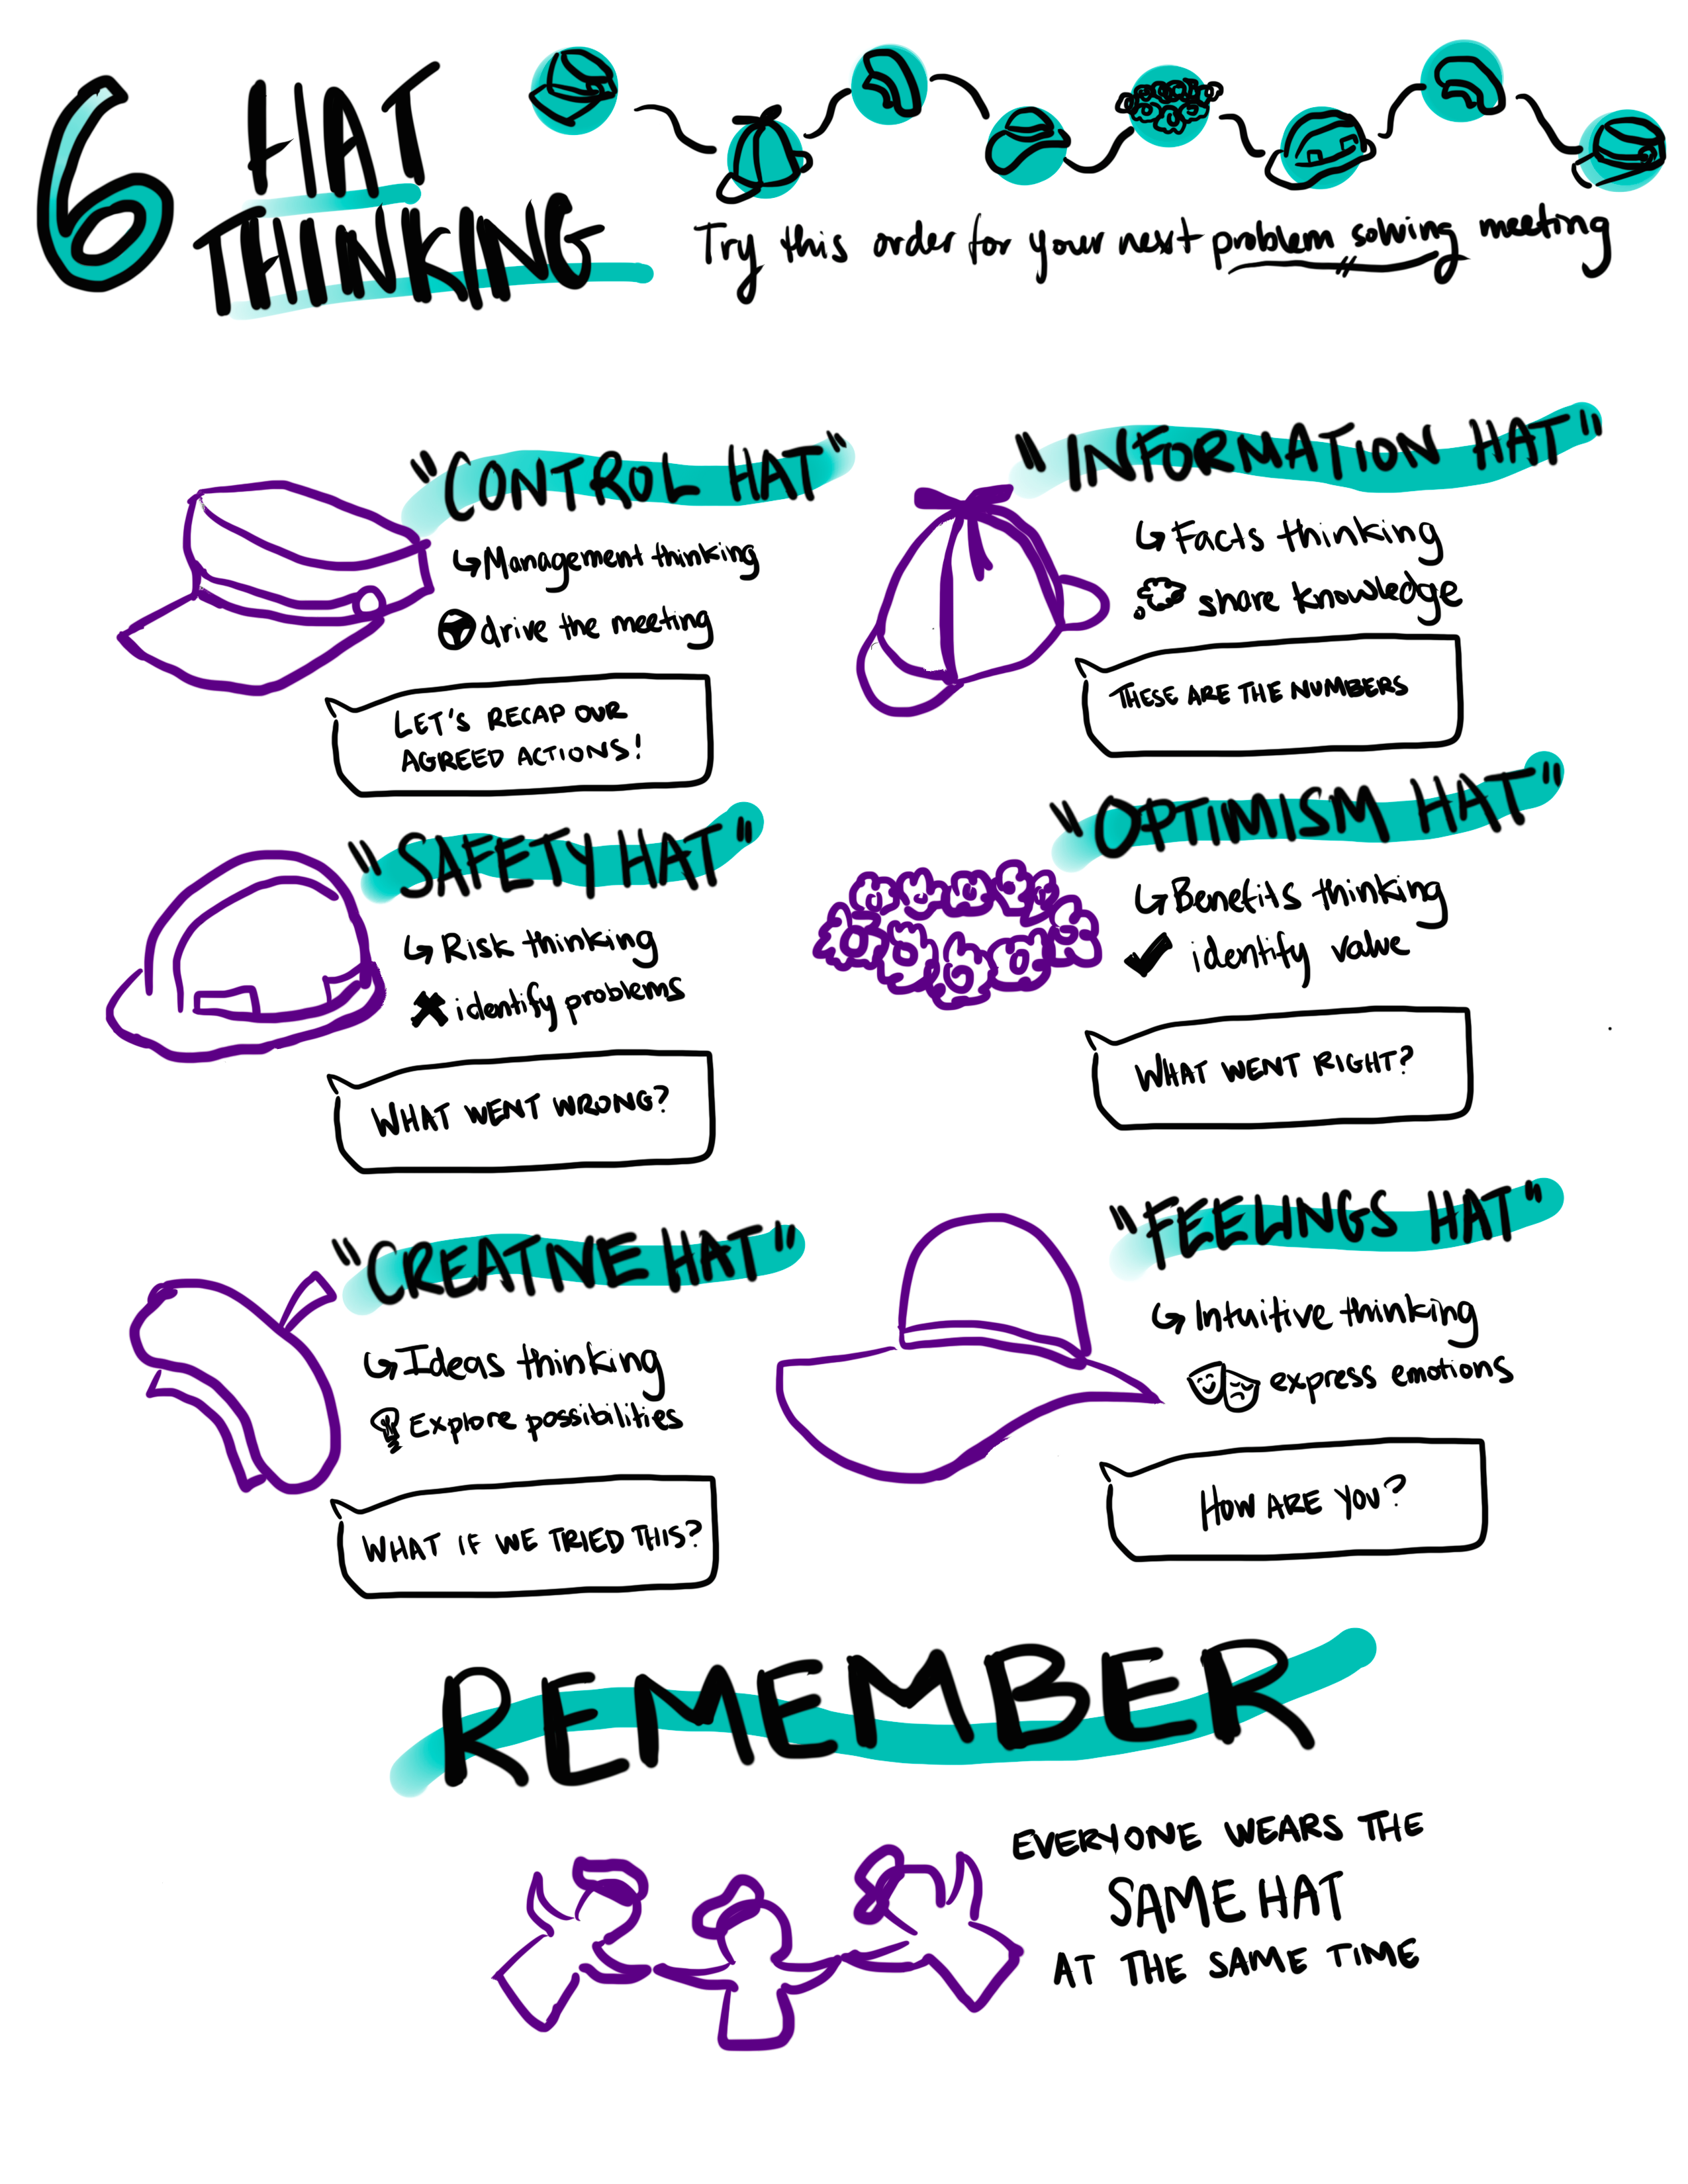 6 HAT
THINKING
Try this order for your next problem solving meeting
"CONTROL HAT"
Management thinking
drive the meeting
LET'S RECAP OUR
AGREED ACTIONS!
"INFORMATION HAT"
Facts thinking
share knowledge
THESE ARE THE NUMBERS
"SAFETY HAT"
Risk thinking
identify problems
WHAT WENT WRONG?
"OPTIMISM HAT"
Benefits thinking
identify value
WHAT WENT RIGHT?
"CREATIVE HAT"
Ideas thinking
Explore possibilities
WHAT IF WE TRIED THIS?
"FEELINGS HAT"
Intuitive thinking
express emotions
HOW ARE YOU?
REMEMBER
EVERYONE WEARS THE
SAME HAT
AT THE SAME TIME